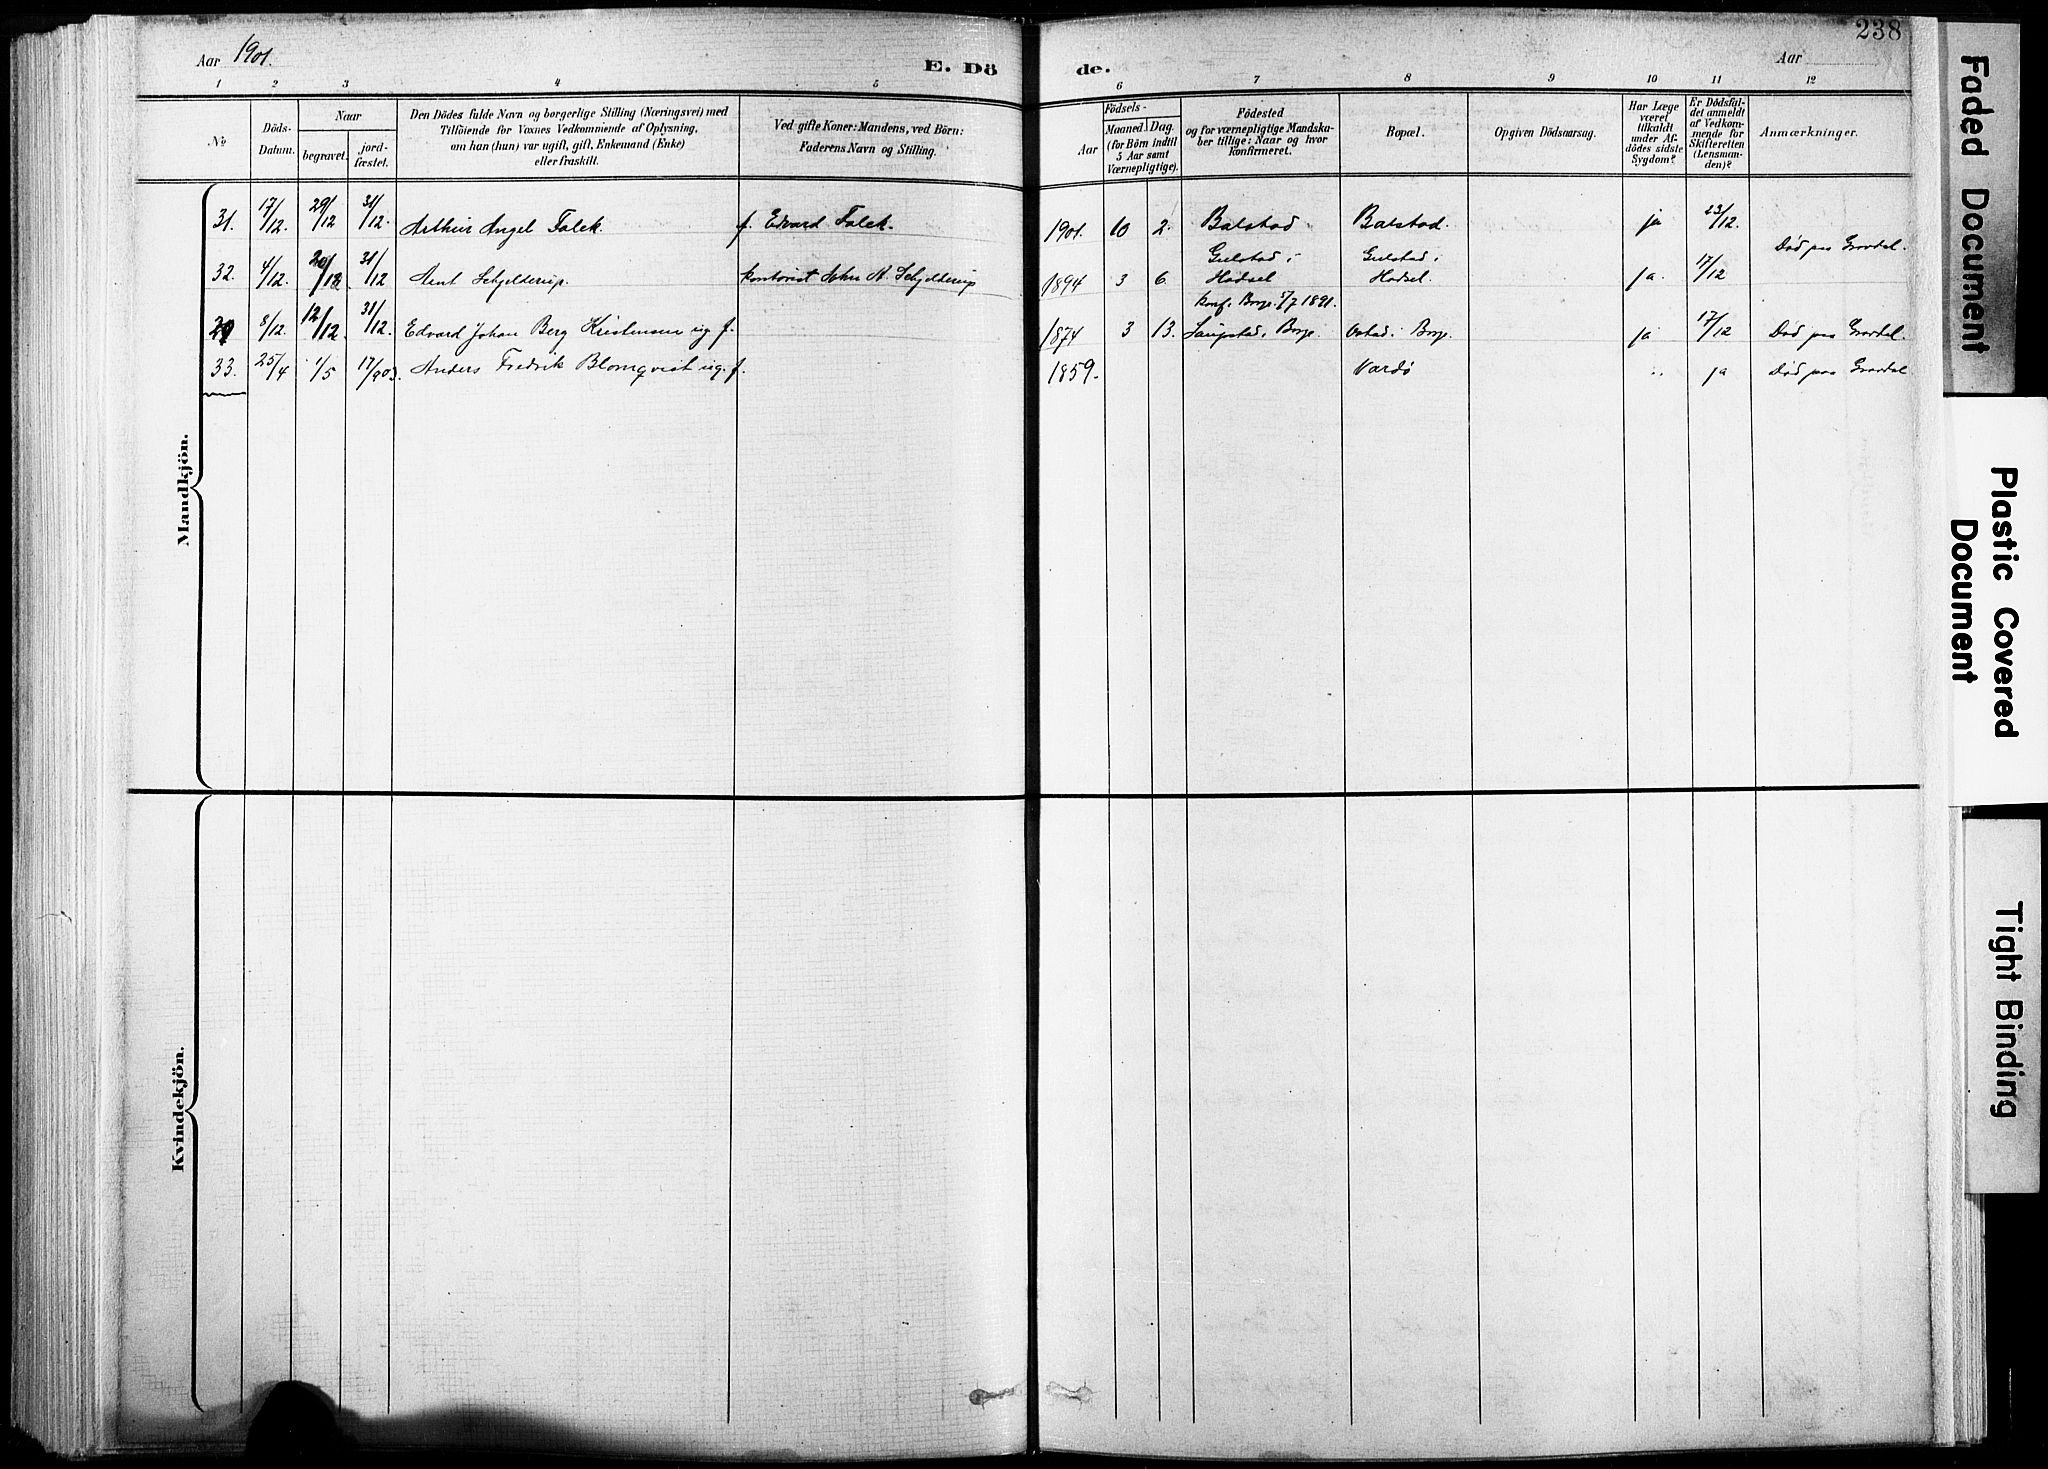 Aar 1901.
E. Dö
de.
Aar
238
1 2 3 4 5
6 7 8 9 10 11 12
No
Döds-
Datum.
Naar
begravet.
jord-
fæstet.
Den Dödes fulde Navn og borgerlige Stilling (Næringsvei) med
Tilföiende for Voxnes Vedkommende af Oplysning,
om han (hun) var ugift, gift, Enkemand (Enke)
eller fraskilt.
Ved gifte Koner: Mandens, ved Börn:
Faderens Navn og Stilling.
Födsels-
Aar
Maaned. Dag.
(for Börn indtil
5 Aar samt
Værnepligtige).
Födested
og for værnepligtige Mandska-
ber tillige: Naar og hvor
Konfirmeret.
Bopæl.
Opgiven Dödsaarsag.
Har Læge
været
tilkaldt
under Af-
dödes sidste
Sygdom?
Er Dödsfal-
det anmeldt
af Vedkom-
mende for
Skifteretten
(Lensman-
den)?
Anmærkninger.
Mandkjön.
31. 17/12. 29/12 31/12. Arthur Angel Falck. f. Edvard Falck. 1901. 10 2. Balstad Balstad. ja 23/12.
32. 4/12. 20/12. 31/12 Arnt Schjelderup. kontorist John A. Schjelderup 1894 3 6. Gulstad i Hadsel Gulstad i Hadsel. ja. 17/12 Död paa Gravdal.
konf. Borge 5/7 1891.
29 8/12. 12/12. 31/12. Edvard Johan Berg Kristensen ug f. 1874 3 13. i Borge. i Borge. ja 17/12 Död paa Gravdal.
33. 25/4 1/5 17/ 903. Anders Fredrik Blomqvist ug. f. 1859. Vardö .. ja Död paa Gravdal
Kvindekjön.
Faded Document
Plastic Covered
Document
Tight Binding